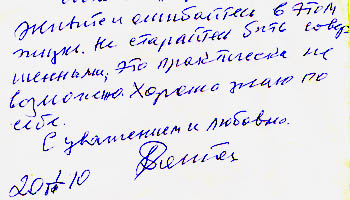 Живите и ошибайтесь в этом
жизни. Не старайтесь быть совер-
шенными, это практически не
возможно. Хорошо знаю по
себе.
С уважением и любовью.